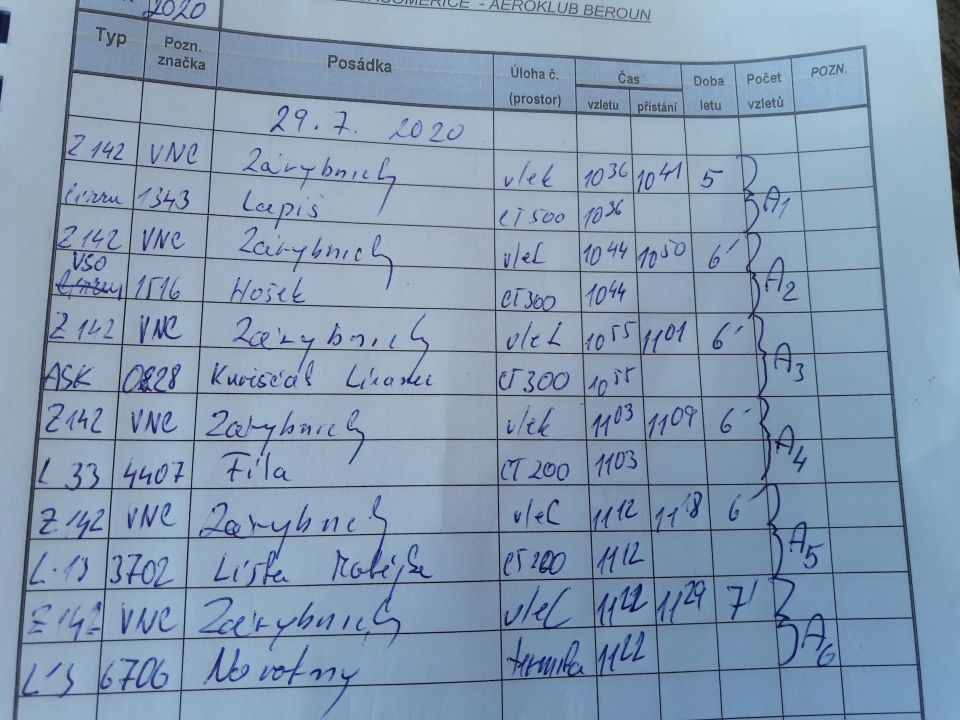 2020 - AEROKLUB BEROUN
Typ Pozn. značka Posádka Úloha č. (prostor) Čas vzletu přistání Doba letu Počet vzletů POZN.
29. 7. 2020
Z 142 VNC Zárybnický vlek 10 36 10 41 5 A1
1343 Lapiš CT 500 10 36
Z 142 VNC Zárybnický vlek 10 44 10 50 6' A2
VSO 1516 Hošek CT 300 10 44
Z 142 VNC Zárybnický vlek 10 55 11 01 6' A3
ASK 0828 CT 300 10 55
Z 142 VNC Zárybnický vlek 11 03 11 09 6' A4
L 33 4407 Fila CT 200 11 03
Z 142 VNC Zárybnický vlek 11 12 11 18 6' A5
L-13 3702 Liška CT 200 11 12
Z 142 VNC Zárybnický vlek 11 22 11 29 7' A6
L13 6706 Novotny termika 11 22